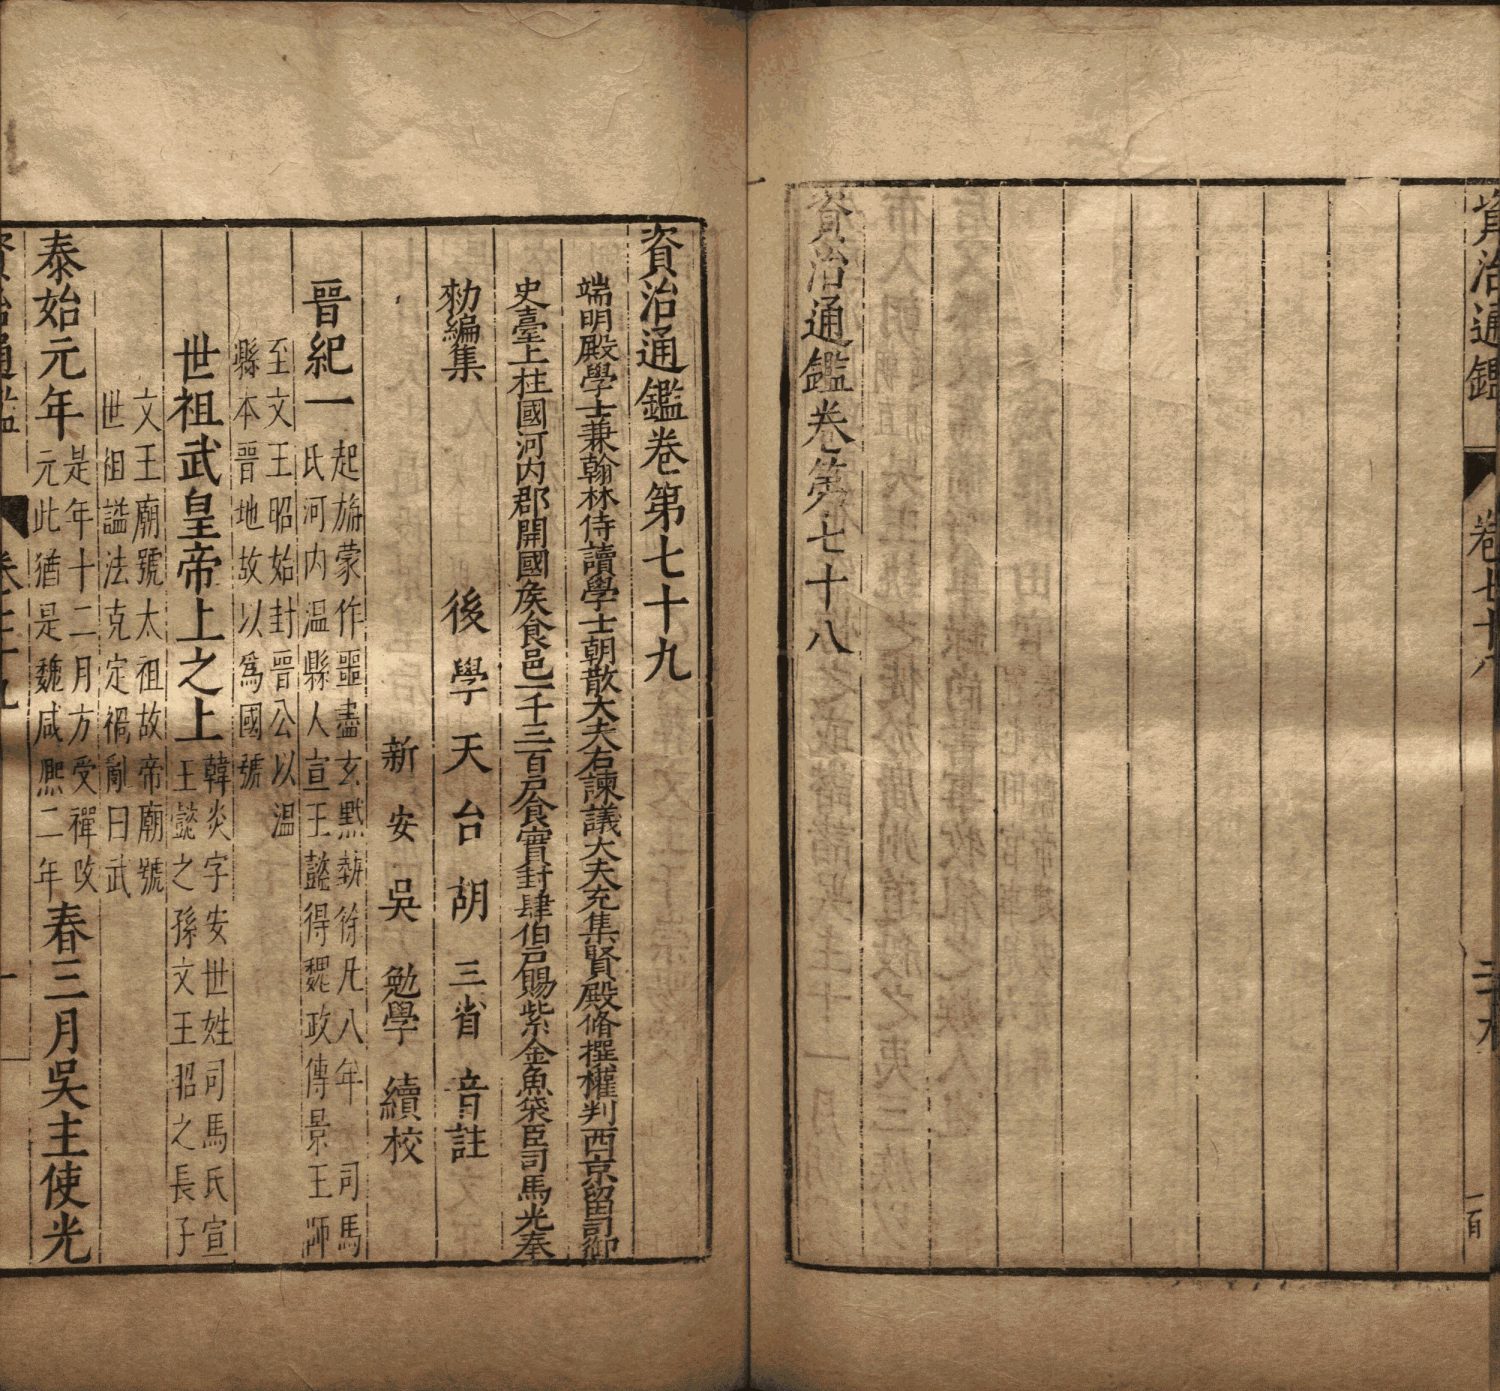 資治通鑑
卷七十八
資治通鑑卷第七十八
資治通鑑卷第七十九
端明殿學士兼翰林侍讀學士朝散大夫右諫議大夫充集賢殿脩撰權判西京留司御
史臺上柱國河内郡開國矦食邑一千三百戸食實封肆伯戸賜紫金魚袋臣司馬光奉
勑編集
後學天台胡三省音註
新安吳勉學續校
晉紀一
起旃蒙作噩盡玄黓執徐凡八年 司馬
氏河内温縣人宣王懿得魏政傳景王師
至文王昭始封晉公以温
縣本晉地故以爲國號
世祖武皇帝上之上
諱炎字安世姓司馬氏宣
王懿之孫文王昭之長子
文王廟號太祖故帝廟號
世祖謚法克定禍亂曰武
泰始元年
是年十二月方受禪改
元此猶是魏咸熈二年
春三月吳主使光
資治通鑑
卷七十九
一